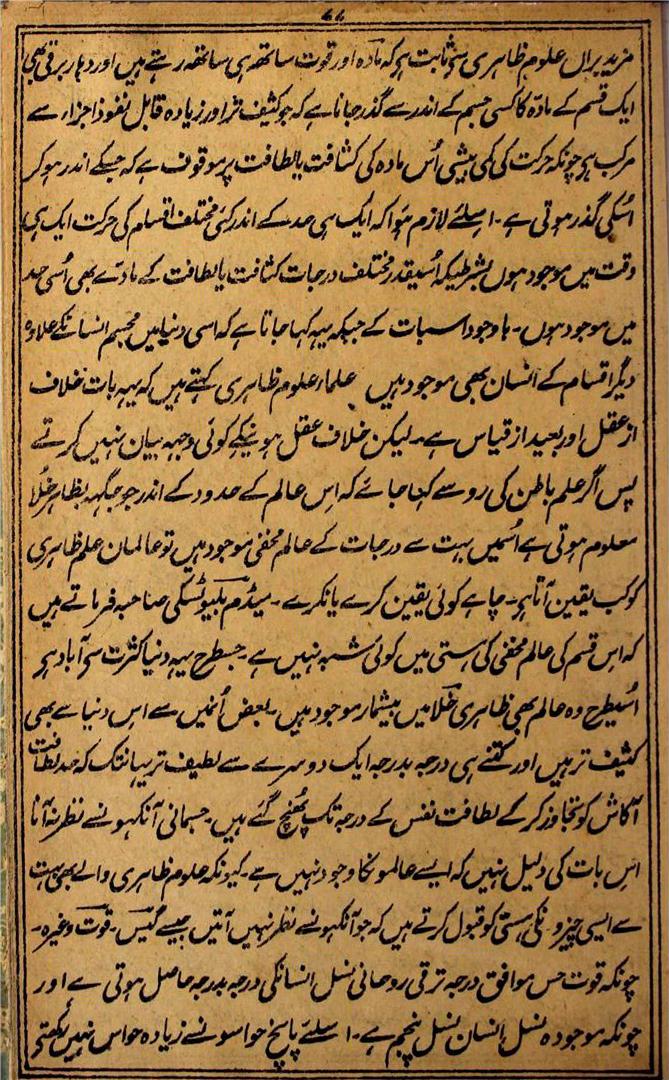 ۶۶
مزید براں علوم ظاہری سے ثابت ہے کہ مادّہ اور قوت ساتھ ہی ساتھ رہتے ہیں اور دھار برقی بھی
ایک قسم کے مادّہ کا کسی جسم کے اندر سے گذر جانا ہے کہ جو کثیف تر اور زیادہ قابل نفوذ اجزاء سے
مرکب ہی چونکہ حرکت کی کمی بیشی اُس مادہ کی کثافت یا لطافت پر موقوف ہے کہ جسکے اندر ہو کر
اُسکی گذر ہوتی ہے۔ اسلئے لازم ہوا کہ ایک ہی حد کے اندر کئی مختلف اقسام کی حرکت ایک ہی
وقت میں موجود ہوں بشرطیکہ اُسیقدر مختلف درجات کثافت یا لطافت کے مادّے بھی اُسی حد
میں موجود ہوں۔ باوجود اسبات کے جبکہ یہہ کہا جاتا ہے کہ اسی دنیا میں مجسم انسانکے علاوہ
دیگر اقسام کے انسان بھی موجود ہیں علماء علوم ظاہری کہتے ہیں کہ یہہ بات خلاف
از عقل اور بعید از قیاس ہے۔ لیکن خلاف عقل ہونیکے کوئی وجہہ بیان نہیں کرتے
پس اگر علم باطن کی رو سے کہا جائے کہ اِس عالم کے حدود کے اندر جو جگہہ بظاہر خلا
معلوم ہوتی ہے اُسمیں بہت سے درجات کے عالم مخفی موجود ہیں تو عالمان علم ظاہری
کو کب یقین آتا ہی۔ چاہے کوئی یقین کرے یا نکرے۔ میڈم بلیوٹسکی صاحبہ فرماتے ہیں
کہ اِس قسم کی عالم مخفی کی ہستی میں کوئی شبہ نہیں ہے۔ جسطرح یہہ دنیا کثرت سے آباد ہی
اُسیطرح وہ عالم بھی ظاہری خلا میں بیشمار موجود ہیں۔ بعض اُنمیں سے اِس دنیا سے بھی
کثیف تر ہیں اور کتنے ہی درجہ بدرجہ ایک دوسرے سے لطیف تر یہانتک کہ حد لطافت
آکاش کو تجاوز کر کے لطافت نفس کے درجہ تک پُہنچ گئے ہیں۔ جسمانی آنکہونسے نظر نہ آنا
اِس بات کی دلیل نہیں کہ ایسے عالمونکا وجود نہیں ہے۔ کیونکہ علوم ظاہری والے بھی بہت
سے ایسی چیزونکی ہستی کو قبول کرتے ہیں کہ جو آنکہونسے نظر نہیں آتیں جیسے گیس۔ قوت وغیرہ۔
چونکہ قوت حس موافق درجہ ترقی روحانی نسل انسانکی درجہ بدرجہ حاصل ہوتی ہے اور
چونکہ موجودہ نسل انسان نسل پنجم ہے۔ اسلئے پانچ حواسونسے زیادہ حواس نہیں رکھتی